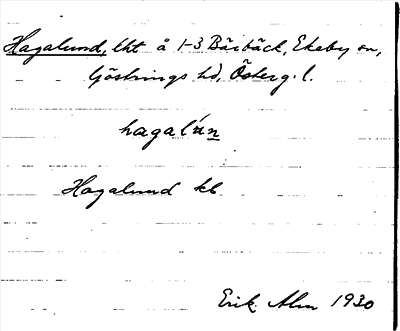 Hagalund, lht å 1-3 Bärbäck, Ekeby sn,
Göstrings hd, Österg. l.
hagalún
Hagalund kb
Erik Alm 1930